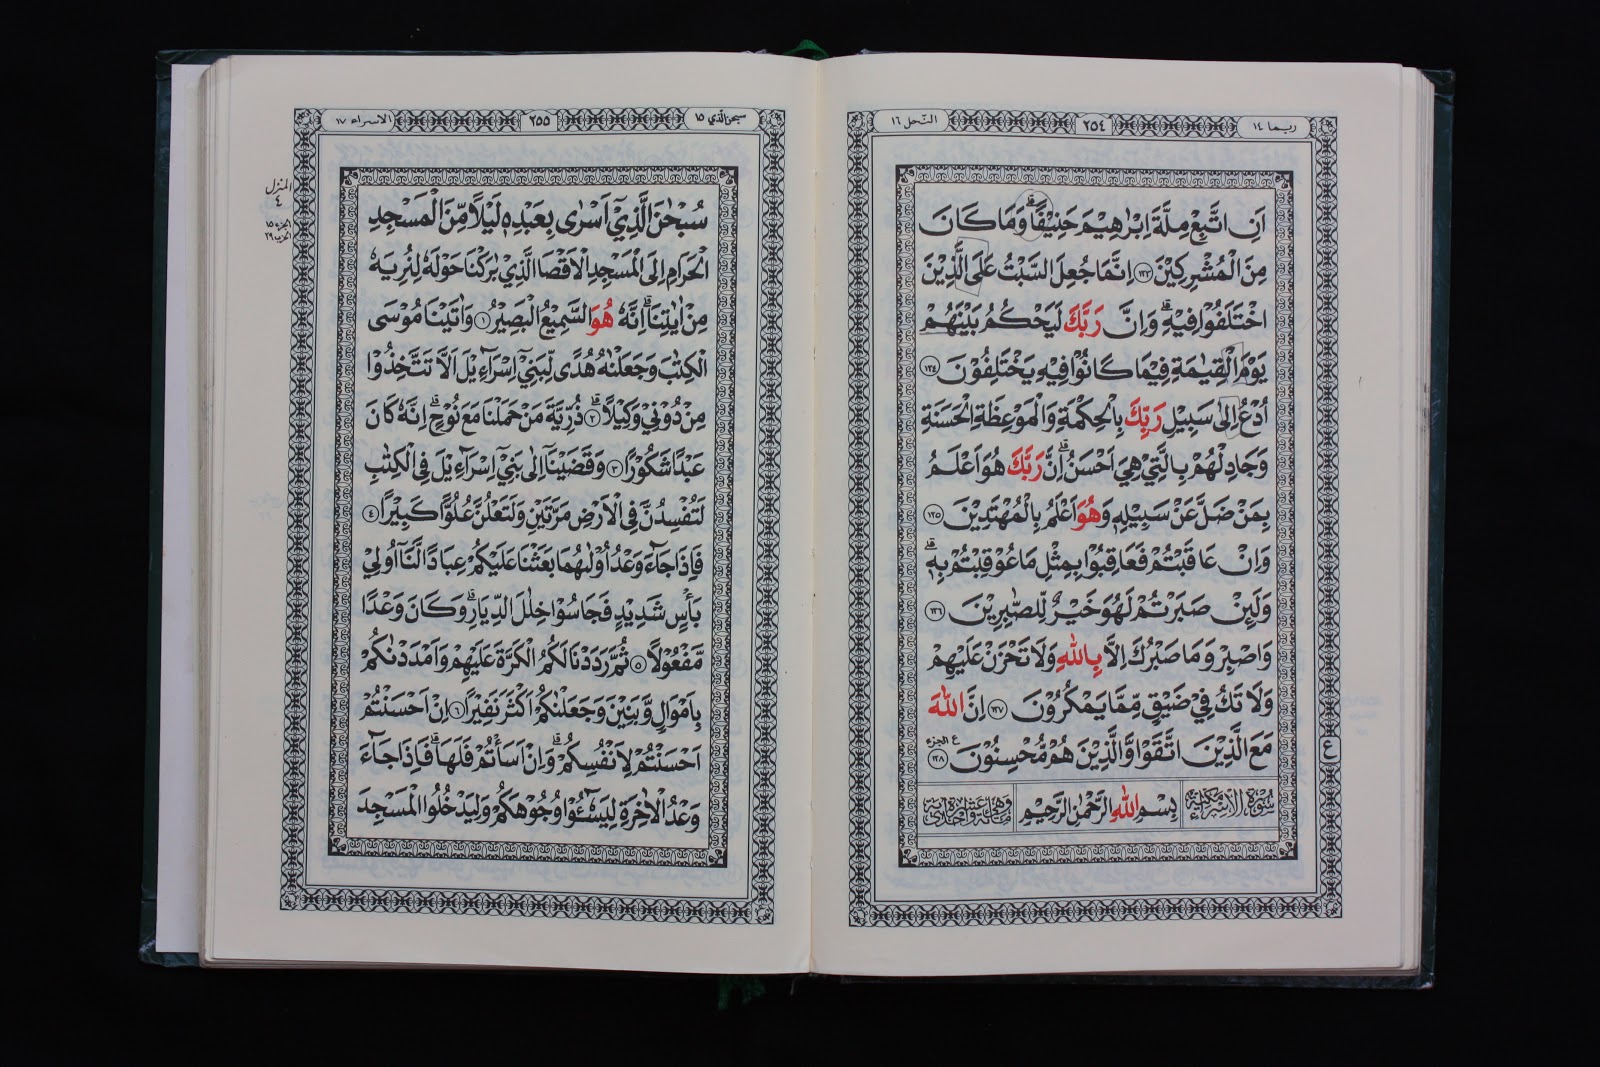 ربما ١٤
٢٥٤
النحل ١٦
اَنِ اتَّبِعْ مِلَّةَ اِبْرٰهِيْمَ حَنِيْفًاۗ وَمَا كَانَ
مِنَ الْمُشْرِكِيْنَ ١٢٣ اِنَّمَا جُعِلَ السَّبْتُ عَلَى الَّذِيْنَ
اخْتَلَفُوْا فِيْهِۗ وَاِنَّ رَبَّكَ لَيَحْكُمُ بَيْنَهُمْ
يَوْمَ الْقِيٰمَةِ فِيْمَا كَانُوْا فِيْهِ يَخْتَلِفُوْنَ ١٢٤
اُدْعُ اِلٰى سَبِيْلِ رَبِّكَ بِالْحِكْمَةِ وَالْمَوْعِظَةِ الْحَسَنَةِ
وَجَادِلْهُمْ بِالَّتِيْ هِيَ اَحْسَنُۗ اِنَّ رَبَّكَ هُوَ اَعْلَمُ
بِمَنْ ضَلَّ عَنْ سَبِيْلِهٖ وَهُوَ اَعْلَمُ بِالْمُهْتَدِيْنَ ١٢٥
وَاِنْ عَاقَبْتُمْ فَعَاقِبُوْا بِمِثْلِ مَا عُوْقِبْتُمْ بِهٖۗ
وَلَىِٕنْ صَبَرْتُمْ لَهُوَ خَيْرٌ لِّلصّٰبِرِيْنَ ١٢٦
وَاصْبِرْ وَمَا صَبْرُكَ اِلَّا بِاللّٰهِ وَلَا تَحْزَنْ عَلَيْهِمْ
وَلَا تَكُ فِيْ ضَيْقٍ مِّمَّا يَمْكُرُوْنَ ١٢٧ اِنَّ اللّٰهَ
مَعَ الَّذِيْنَ اتَّقَوْا وَّالَّذِيْنَ هُمْ مُّحْسِنُوْنَ ١٢٨
ع الجزء
ع
سورة الاسراء مكية
بِسْمِ اللّٰهِ الرَّحْمٰنِ الرَّحِيْمِ
وهي مائة واحدى عشرة اية
سبحن الذي ١٥
٢٥٥
الاسراء ١٧
المنزل
٤
الجزء ١٥
الحزب ٢٩
سُبْحٰنَ الَّذِيْٓ اَسْرٰى بِعَبْدِهٖ لَيْلًا مِّنَ الْمَسْجِدِ
الْحَرَامِ اِلَى الْمَسْجِدِ الْاَقْصَا الَّذِيْ بٰرَكْنَا حَوْلَهٗ لِنُرِيَهٗ
مِنْ اٰيٰتِنَاۗ اِنَّهٗ هُوَ السَّمِيْعُ الْبَصِيْرُ ١ وَاٰتَيْنَا مُوْسَى
الْكِتٰبَ وَجَعَلْنٰهُ هُدًى لِّبَنِيْٓ اِسْرَاۤءِيْلَ اَلَّا تَتَّخِذُوْا
مِنْ دُوْنِيْ وَكِيْلًاۗ ٢ ذُرِّيَّةَ مَنْ حَمَلْنَا مَعَ نُوْحٍۗ اِنَّهٗ كَانَ
عَبْدًا شَكُوْرًا ٣ وَقَضَيْنَآ اِلٰى بَنِيْٓ اِسْرَاۤءِيْلَ فِى الْكِتٰبِ
لَتُفْسِدُنَّ فِى الْاَرْضِ مَرَّتَيْنِ وَلَتَعْلُنَّ عُلُوًّا كَبِيْرًا ٤
فَاِذَا جَاۤءَ وَعْدُ اُوْلٰىهُمَا بَعَثْنَا عَلَيْكُمْ عِبَادًا لَّنَآ اُولِيْ
بَأْسٍ شَدِيْدٍ فَجَاسُوْا خِلٰلَ الدِّيَارِۗ وَكَانَ وَعْدًا
مَّفْعُوْلًا ٥ ثُمَّ رَدَدْنَا لَكُمُ الْكَرَّةَ عَلَيْهِمْ وَاَمْدَدْنٰكُمْ
بِاَمْوَالٍ وَّبَنِيْنَ وَجَعَلْنٰكُمْ اَكْثَرَ نَفِيْرًا ٦ اِنْ اَحْسَنْتُمْ
اَحْسَنْتُمْ لِاَنْفُسِكُمْۗ وَاِنْ اَسَأْتُمْ فَلَهَاۗ فَاِذَا جَاۤءَ
وَعْدُ الْاٰخِرَةِ لِيَسٗۤـُٔوْا وُجُوْهَكُمْ وَلِيَدْخُلُوا الْمَسْجِدَ